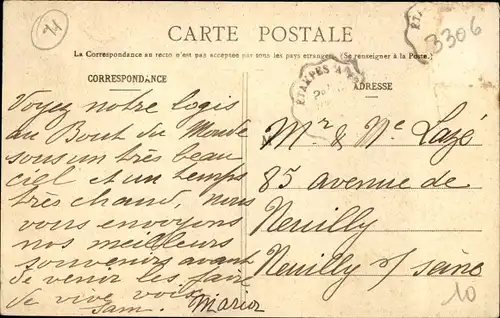 71
CARTE POSTALE
3306
La Correspondance au recto n'est pas acceptée par tous les pays étrangers. (Se renseigner à la Poste.)
CORRESPONDANCE
ADRESSE
ÉTAMPES A
Voyez notre logis
au Bout du Monde
sous un très beau
ciel et un temps
très chaud, nous
vous envoyons
nos meilleurs
souvenirs avant
de venir les faire
de vive voix
Sam. Marior
Mr & Me Lazé
85 avenue de
Neuilly
Neuilly s/ seine
10